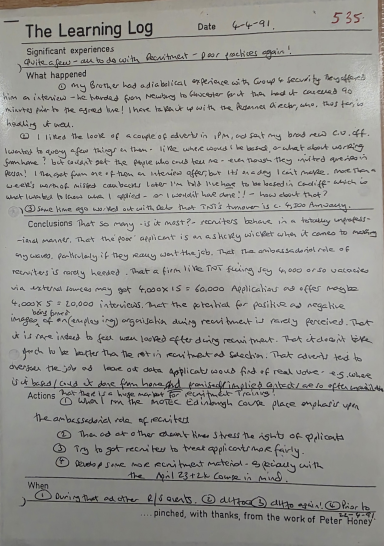 The Learning Log Date 4-4-91. 535.
Significant experiences
Quite a few - all to do with Recruitment - poor practices again!
What happened
① My Brother had a diabolical experience with Group 4 Security. They offered
him an interview - he headed from Newbury to Gloucester for it then had it cancelled 90
minutes prior to the agreed time! I have taken it up with the Personnel Director, who, thus far, is
handling it well.
② I liked the look of a couple of adverts in IPM, and sat my brand new C.V. off.
I wanted to query a few things in them - like where would I be based, or what about working
from home? but couldn't get the people who could tell me - even though they invited queries in
person! I then got from one of them an interview offer, but it's a day I can't make. More than a
week's worth of missed call backs later I'm told I've have to be based in Cardiff - which is
what I wanted to know when I applied - or I wouldn't have done it! - How about that?
③ Some time ago worked out with that TNT's turnover is c. 4,500 Annually.
Conclusions That so many - is it most? - recruiters behave in a totally unprofess-
-ional manner. That the poor applicant is on a sticky wicket when it comes to making
any waves, particularly if they really want the job. That the ambassadorial role of
recruiters is rarely heeded. That a firm like TNT filling say 4,000 or so vacancies
via external sources may get 4,000 x 15 = 60,000 Applications and offer maybe
4,000 x 5 = 20,000 interviews. That the potential for positive and negative
images being formed of an (employing) organisation during recruitment is rarely perceived. That
it is rare indeed to feel well looked after during recruitment. That it doesn't take
much to be better than the rest in recruitment and selection. That adverts tend to
oversell the job and leave out data applicants would find of real value - e.g. where
is it based/could it be done from home, and promised/implied contacts are so often
That there is a huge market for recruitment Training!
Actions ① When I run the MOTEC Edinburgh Course place emphasis upon
the ambassadorial role of recruiters
② Then and at other client times stress the rights of applicants
③ Try to get recruiters to treat applicants more fairly.
④ Develop some more recruitment material - especially with
the April 23+24 Course in mind.
When
① During that and other R/S events. ② ditto ③ ditto again! ④ Prior to
22-4-91
.... pinched, with thanks, from the work of Peter Honey